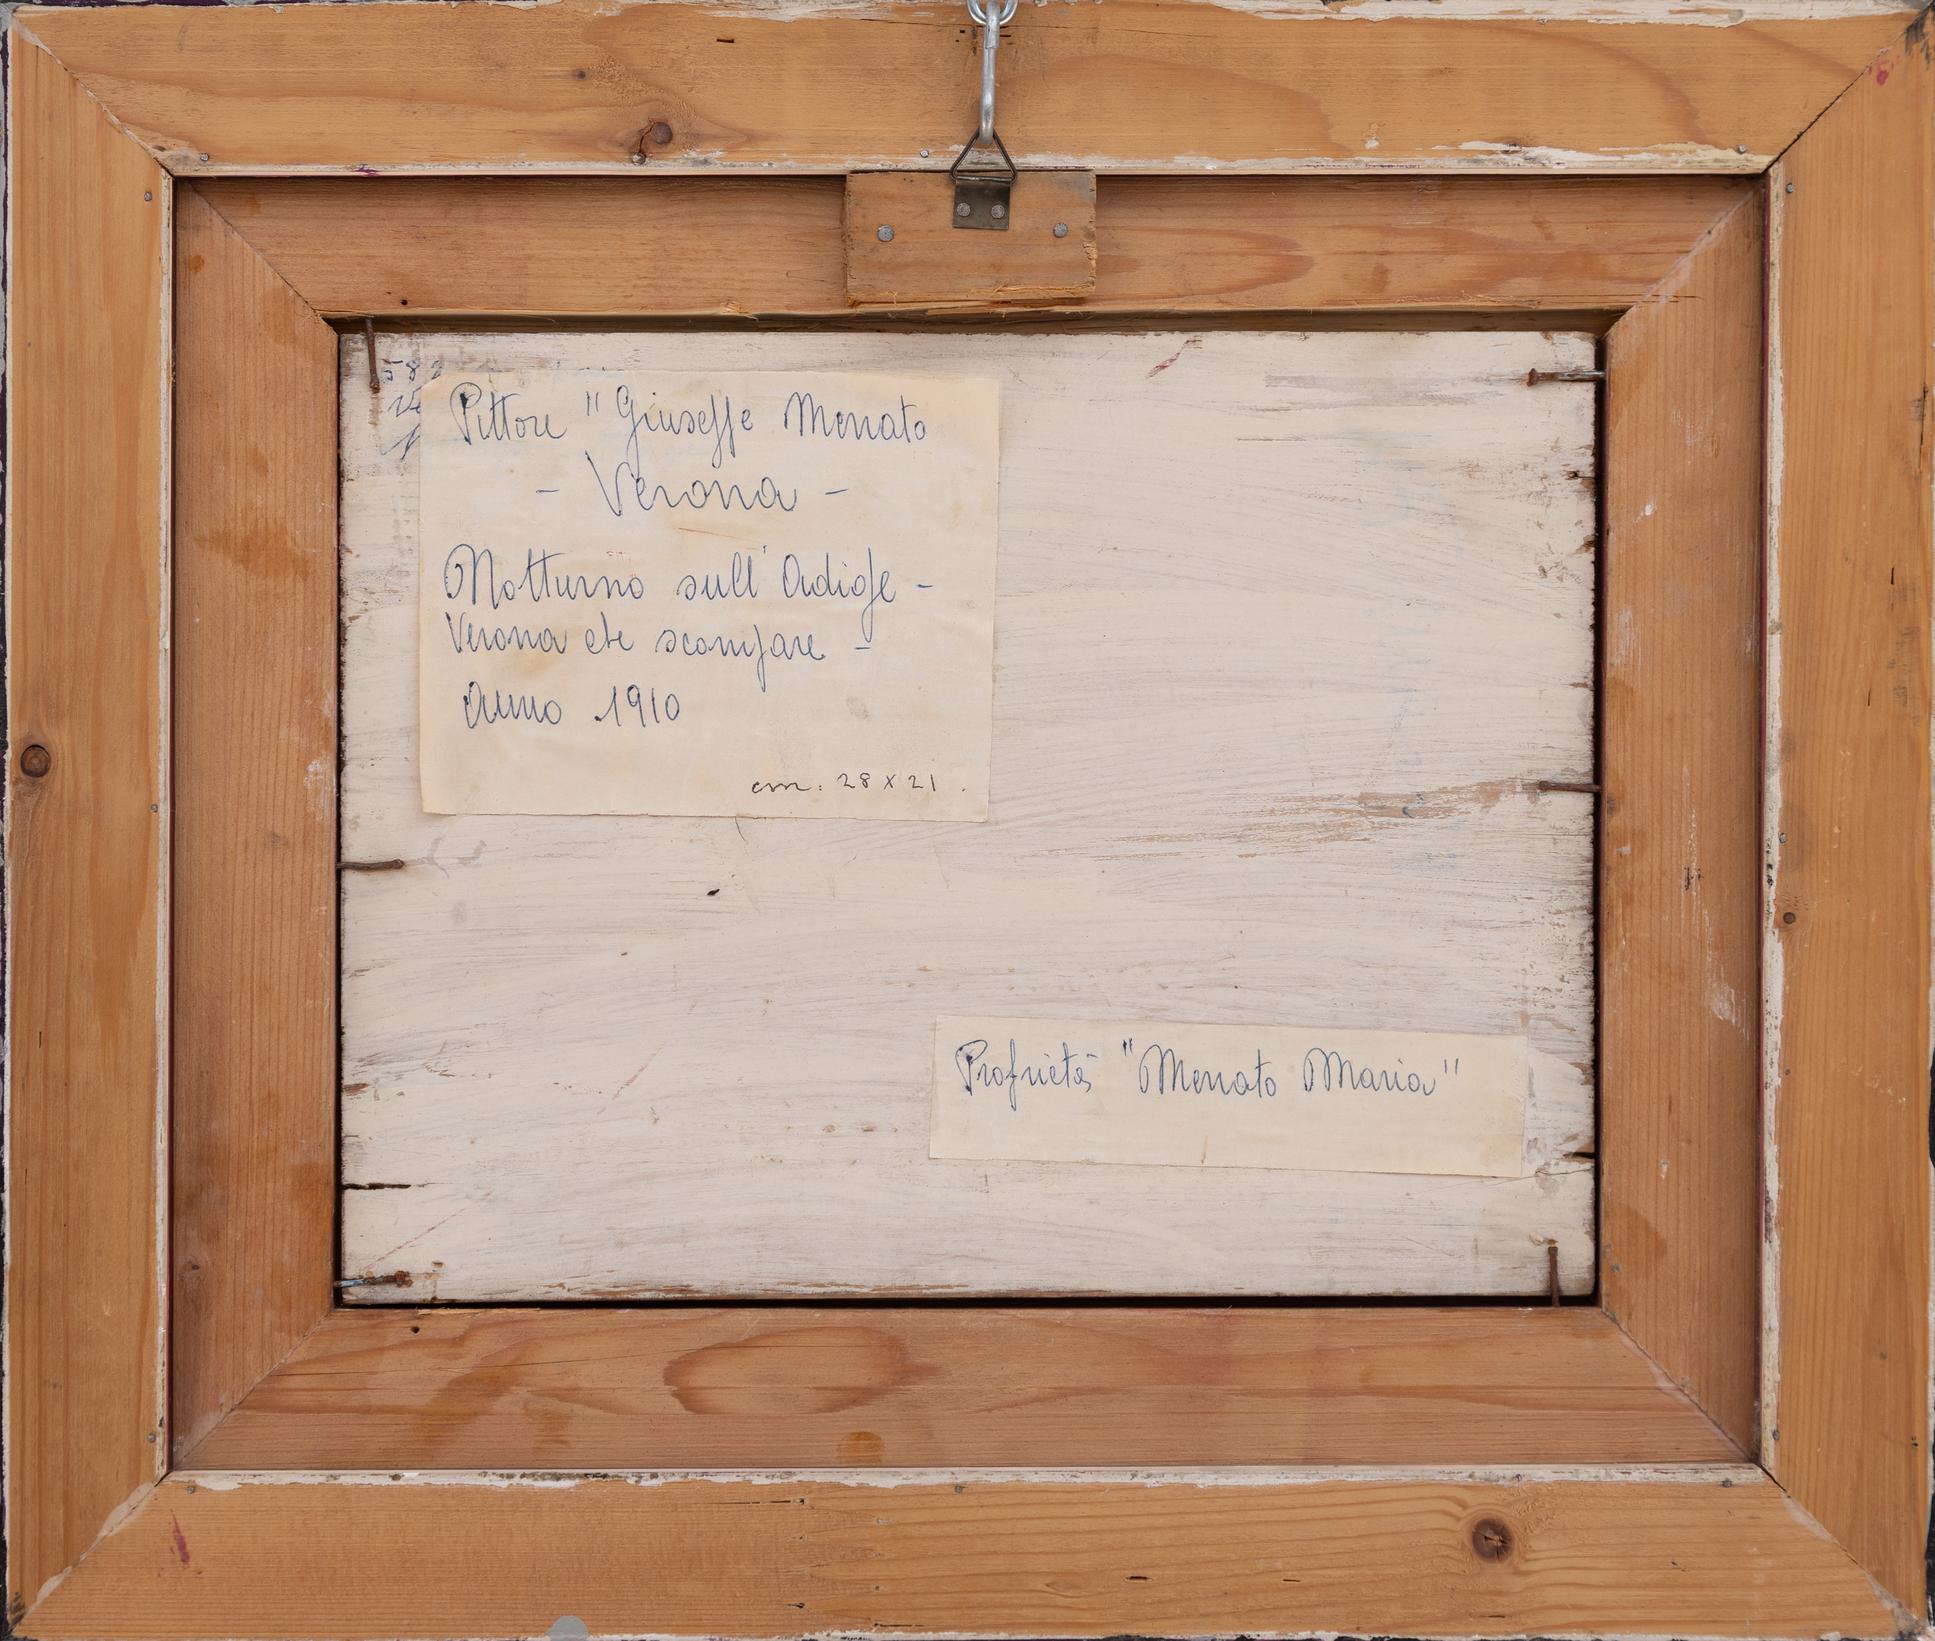 58
Pittore "Giuseppe Menato
- Verona -
Notturno sull'Adige -
Verona che scompare -
Anno 1910
cm. 28 x 21.
Proprietà "Menato Maria"